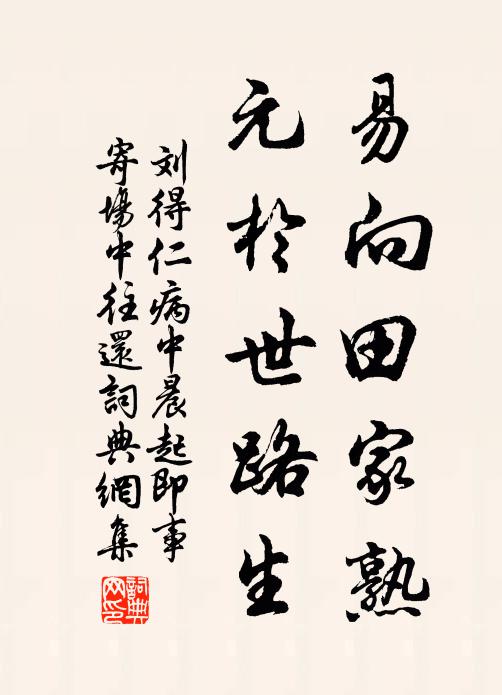 易向田家熟
元於世路生
刘得仁病中晨起即事
寄場中往還詞典網集